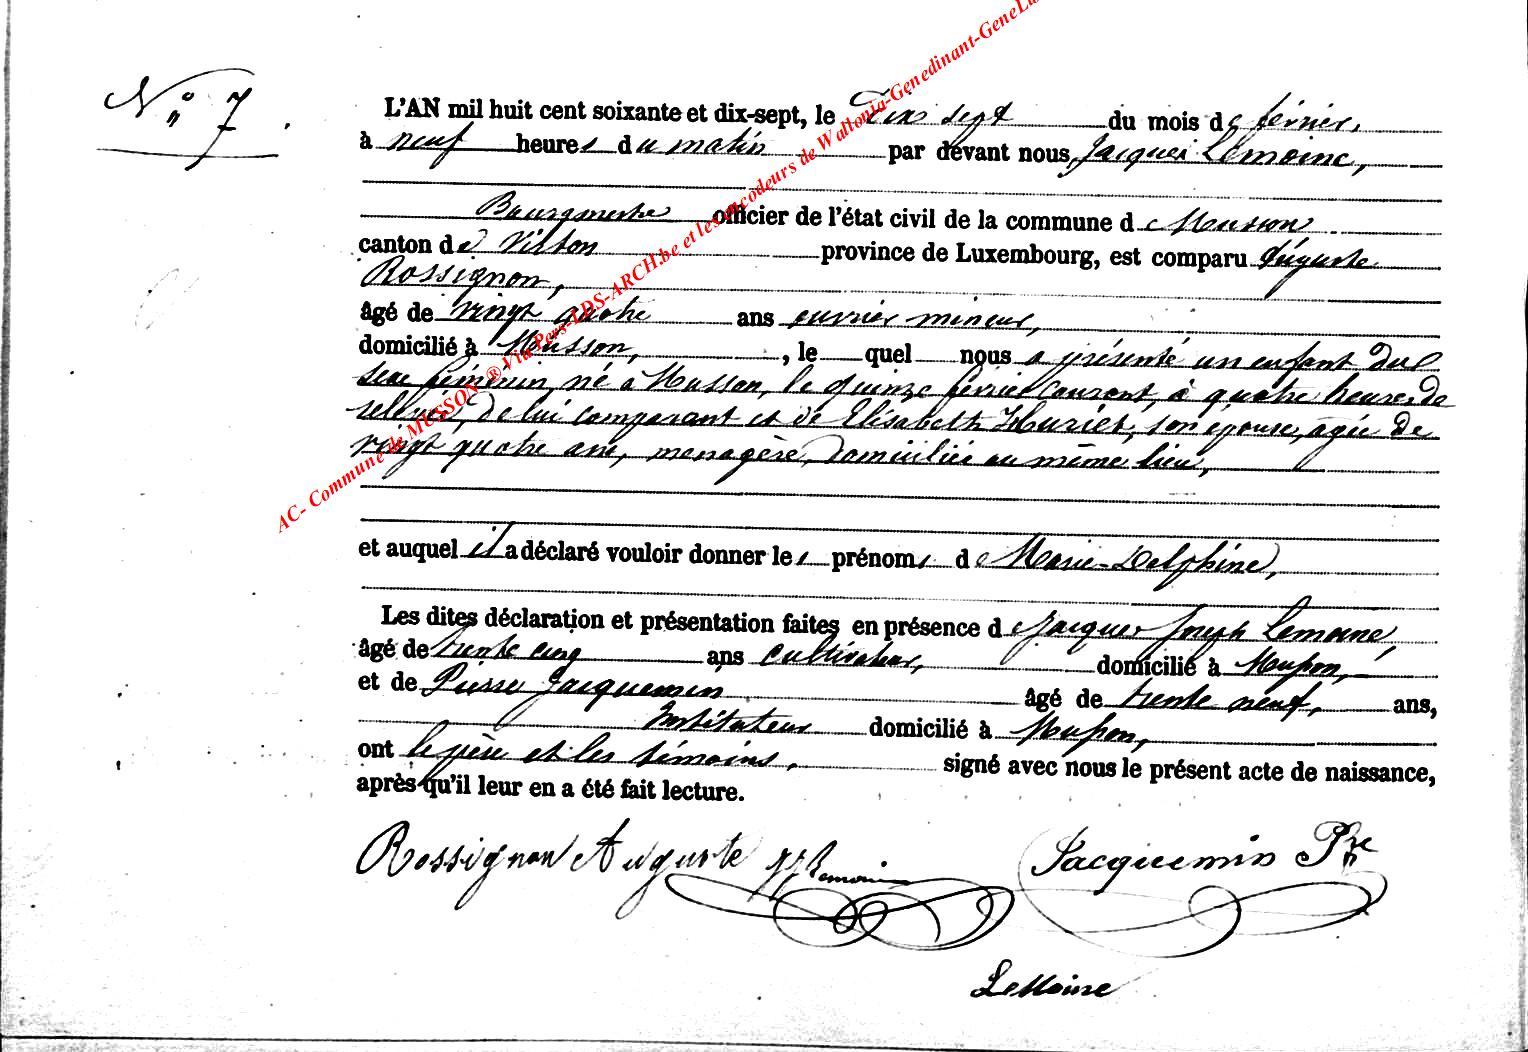 N° 7.
L'AN mil huit cent soixante et dix-sept, le Dix sept du mois de février,
à neuf heures du matin par devant nous Jacques Lemoine,
Bourgmestre officier de l'état civil de la commune de Musson
canton de Virton province de Luxembourg, est comparu Auguste
Rossignon,
âgé de vingt quatre ans ouvrier mineur,
domicilié à Musson, , le quel nous a présenté un enfant du
sexe féminin, né à Musson, le quinze février courant, à quatre heures de
relevée, de lui comparant et de Elisabeth Huriet, son épouse, agée de
vingt quatre ans, menagère, domiciliée au même lieu,
et auquel il a déclaré vouloir donner les prénoms de Marie-Delphine,
Les dites déclaration et présentation faites en présence de Jacques Joseph Lemoine,
âgé de trente cinq ans cultivateur, domicilié à Musson,
et de Pierre Jacquemin âgé de trente neuf, ans,
Instituteur domicilié à Musson,
ont le père et les témoins, signé avec nous le présent acte de naissance,
après qu'il leur en a été fait lecture.
Rossignon Auguste JJ Lemoine Jacquemin Pre
LeMoine
AC- Commune de MUSSON ® Via Pers-LDS-ARCH.be et les encodeurs de Wallonia-Genedinant-GeneLux